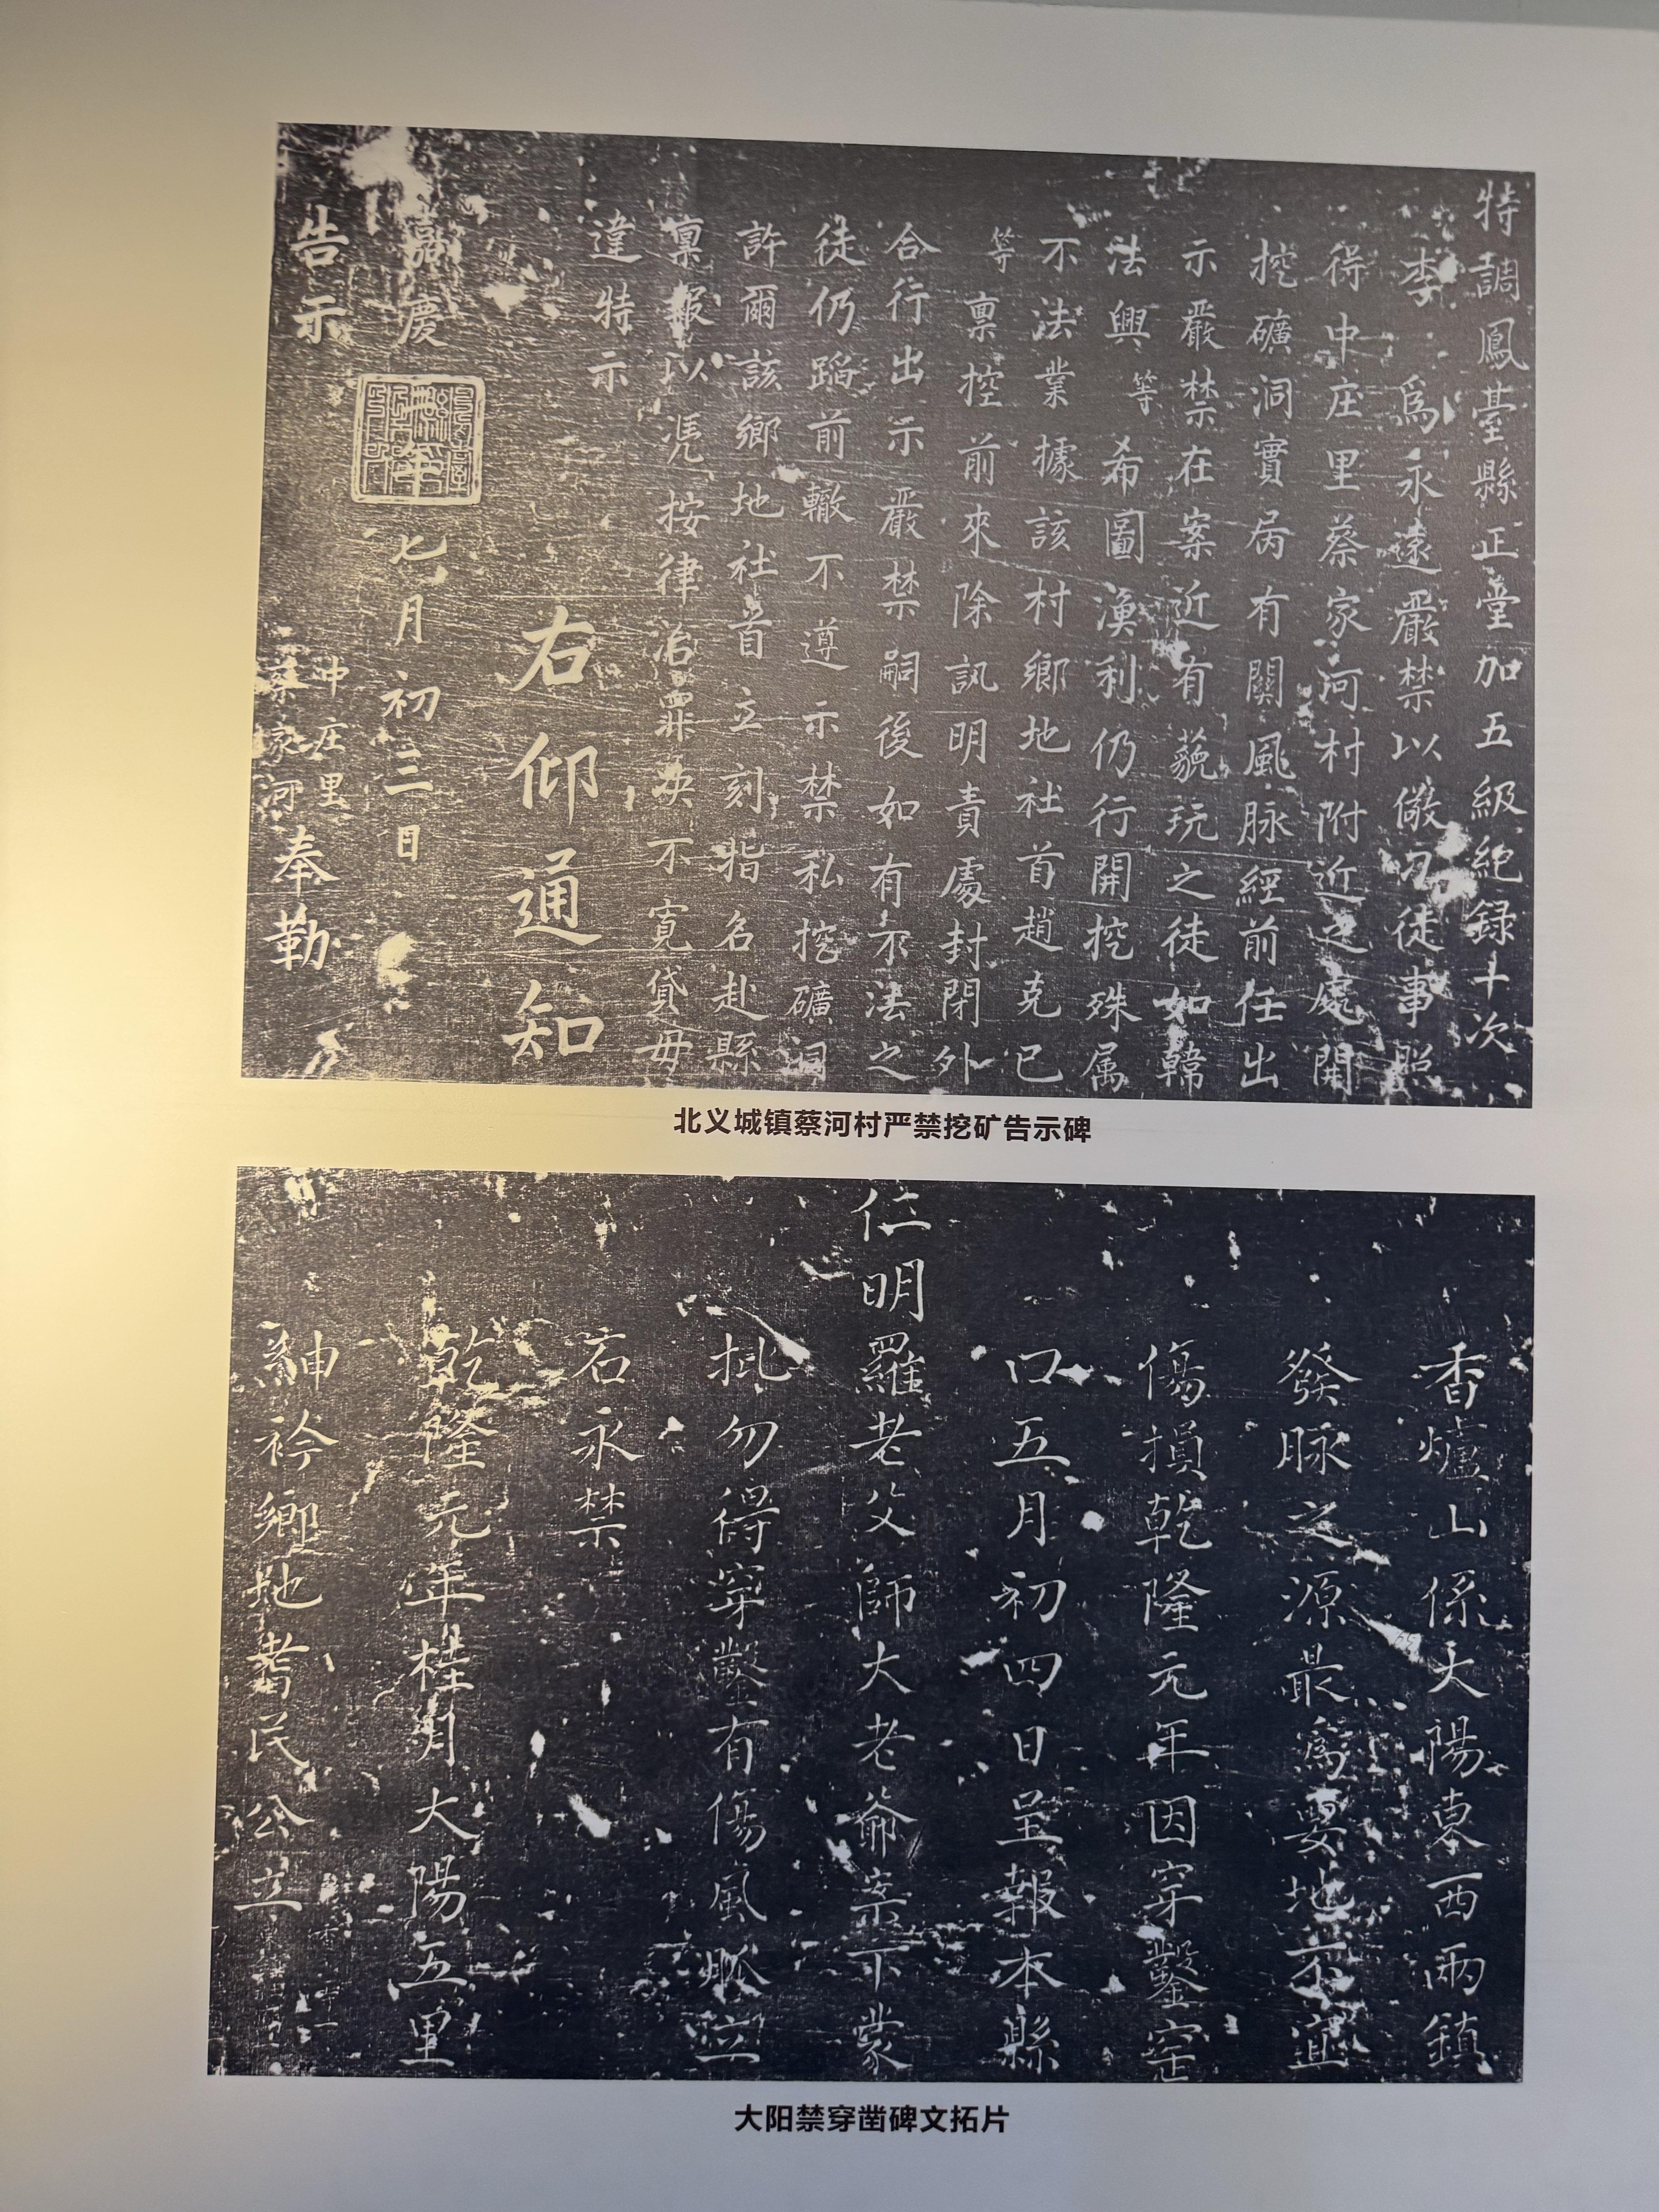 特調鳳臺縣正堂加五級紀錄十次
李　為永遠嚴禁以儆刁徒事照
得中庄里蔡家河村附近之處開
挖礦洞實屙有關風脉經前任出
示嚴禁在案近有藐玩之徒如韓
法興等希圖漁利仍行開挖殊属
不法業據該村鄉地社首趙克已
等稟控前來除訊明責處封閉外
合行出示嚴禁嗣後如有不法之
徒仍蹈前轍不遵示禁私挖礦洞
許爾該鄉地社首立刻指名赴縣
稟報以凴按律治罪决不寬貸毋
違特示
右仰通知
嘉慶 年七月初三日
告示
中庄里
蔡家河
奉勒
北义城镇蔡河村严禁挖矿告示碑
香爐山係大陽東西兩鎮
發脉之源最爲要地不宜
傷損乾隆元年因穿鑿窑
口五月初四日呈報本縣
仁明羅老父師大老爺案下蒙
批勿得穿鑿有傷風脈立
石永禁
乾隆元年桂月大陽五里
紳衿鄉地耆民公立
大阳禁穿凿碑文拓片